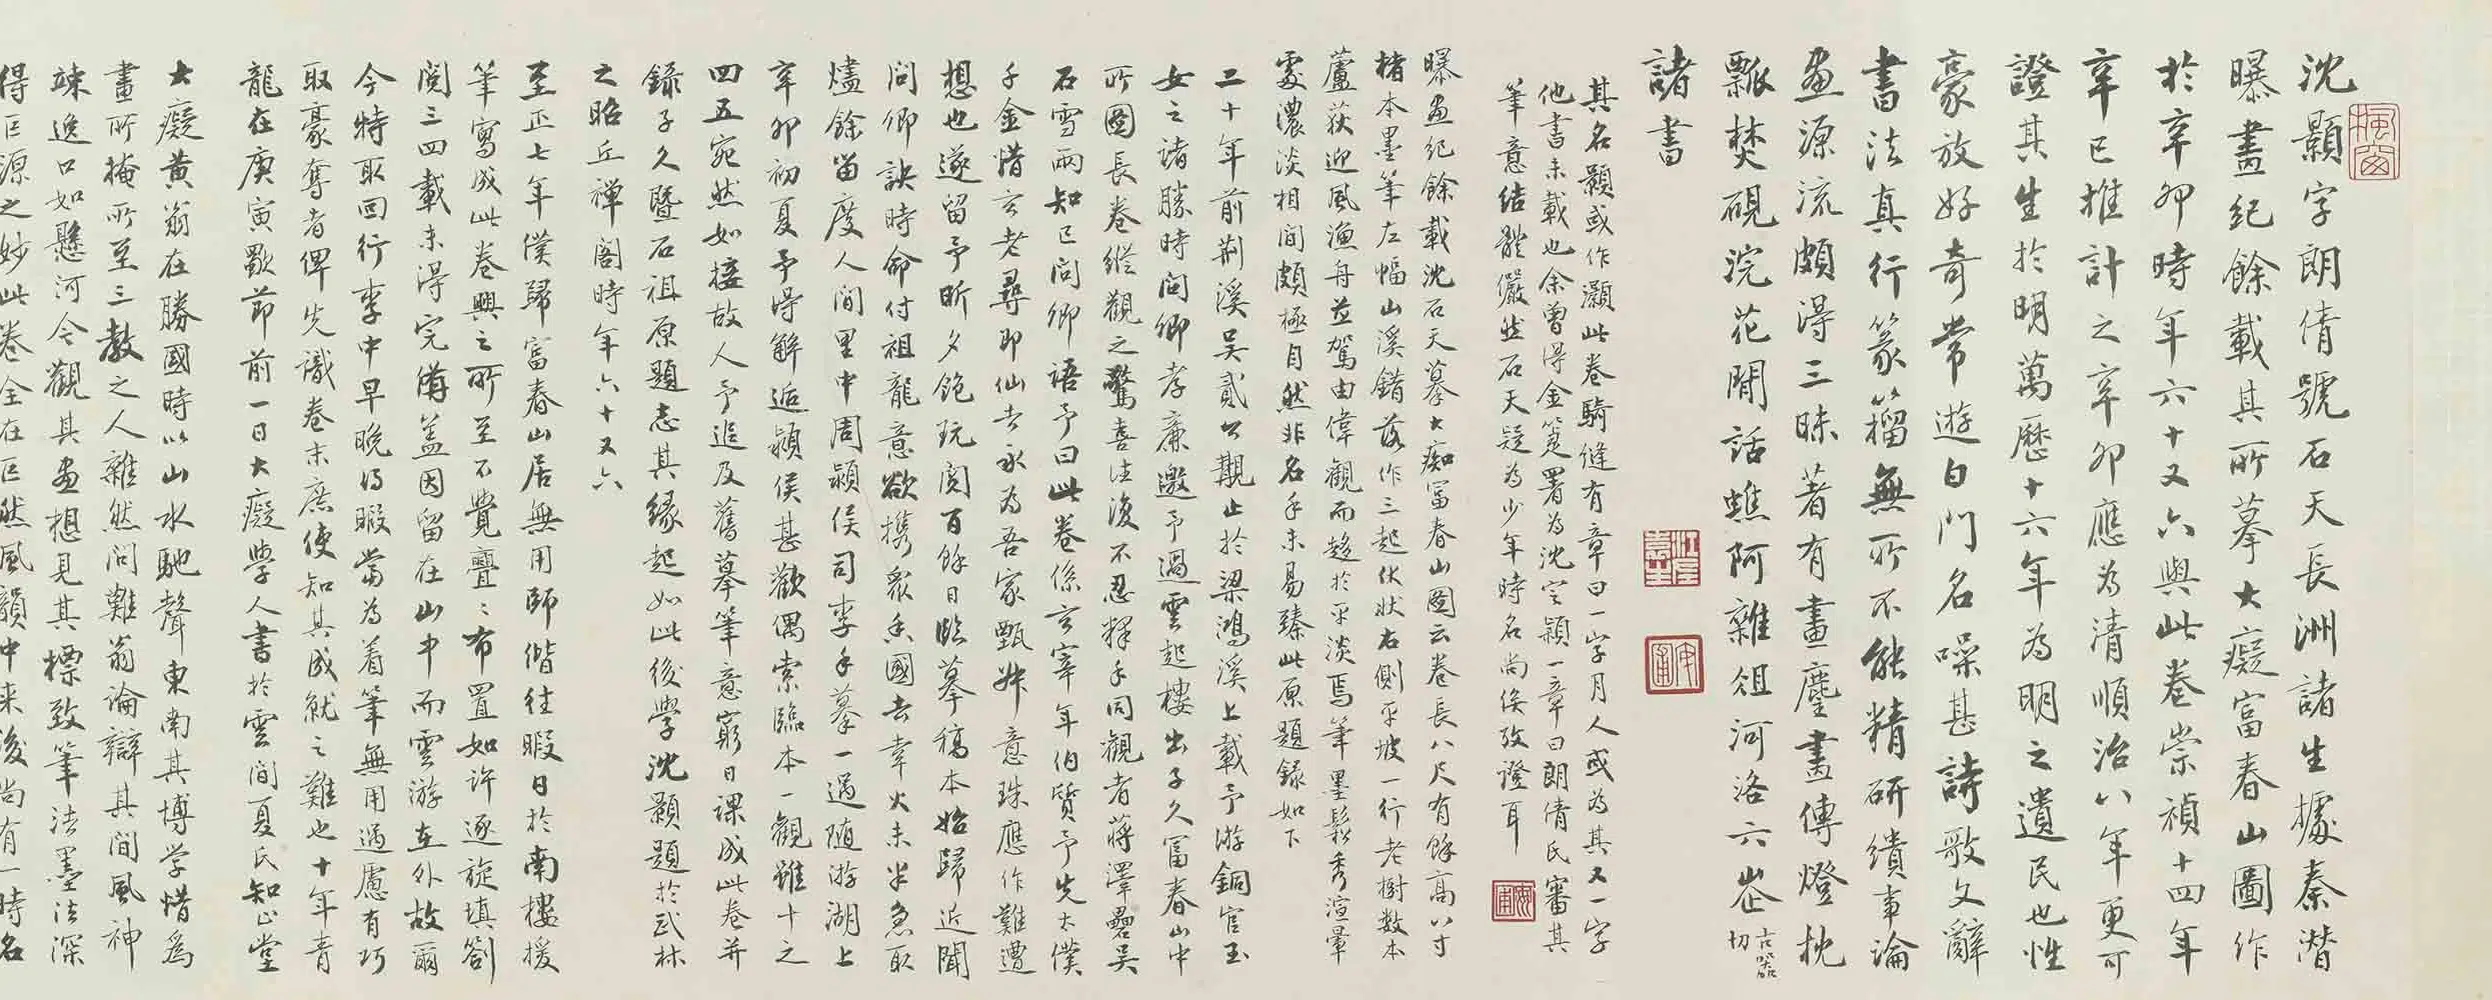 沈顥字朗倩號石天長洲諸生據秦潛
曝畫紀餘載其所摹大癡富春山圖作
於辛卯時年六十又六與此卷崇禎十四年
辛巳推計之辛卯應為清順治八年更可
證其生於明萬歷十六年為明之遺民也性
豪放好奇常遊白門名噪甚詩歌文辭
書法真行篆籀無所不能精研繢事論
畫源流頗得三昧著有畫麈畫傳燈枕
瓢焚硯浣花閒話蟭阿雜俎河洛六岜古器切
諸書
其名顥或作灝此卷騎縫有章曰一字月人或為其又一字
他書未載也余曾得金箑署為沈宜顥一章曰朗倩氏審其
筆意結體儼然石天疑為少年時名尚俟攷證耳
曝畫紀餘載沈石天摹大痴富春山圖云卷長八尺有餘高八寸
楮本墨筆左幅山溪錯落作三起伏狀右側平坡一行老樹数本
蘆荻迎風漁舟並駕由偉觀而趨於平淡焉筆墨鬆秀渲暈
處濃淡相間頗極自然非名手未易臻此原題録如下
二十年前荆溪吴貳公覯止於梁鴻溪上載予游銅官玉
女之諸勝時问卿孝廉邀予過雲起樓出子久富春山中
所圖長卷縱觀之驚喜法後不忍釋手同觀者蔣澤壘吴
石雪兩知已问卿語予曰此卷係玄宰年伯貭予先太僕
千金惜玄老尋即仙去永為吾家甄妹意珠應作難遭
想也遂留予昕夕飽玩閲百餘日臨摹稿本始歸近聞
问卿訣時命付祖龍意欲携衆香國去幸火未半急取
燼餘留度人间里中周顥侯司李手摹一過随游湖上
辛卯初夏予得解逅顥侯甚歡偶索臨本一觀雖十之
四五宛然如接故人予追及舊摹筆意窮日課成此卷并
録子久暨石祖原題志其緣起如此後學沈顥題於武林
之昭丘禅閣時年六十又六
至正七年僕歸富春山居無用師偕往暇日於南樓援
筆寫成此卷興之所至不覺亹〻布置如许逐旋填劄
阅三四載未得完備盖因留在山中而雲游在外故爾
今特取回行李中早晚得暇當為着筆無用過慮有巧
取豪奪者俾先識卷末庶使知其成就之難也十年青
龍在庚寅歜節前一日大癡學人書於雲間夏氏知止堂
大癡黄翁在勝國時以山水馳聲東南其博学惜為
畫所掩所至三教之人雜然问難翁論辯其間風神
竦逸口如懸河今觀其画想見其標致筆法墨法深
得巨源之妙此卷全在巨然風韻中来後尚有一時名